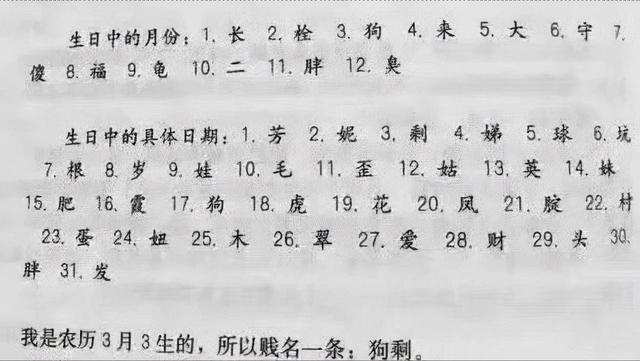 生日中的月份：1. 长 2. 栓 3. 狗 4. 来 5. 大 6. 守 7.
傻 8. 福 9. 龟 10. 二 11. 胖 12. 臭
生日中的具体日期：1. 芳 2. 妮 3. 剩 4. 娣 5. 球 6. 坑
7. 根 8. 岁 9. 娃 10. 毛 11. 歪 12. 姑 13. 英 14. 妹
15. 肥 16. 霞 17. 狗 18. 虎 19. 花 20. 凤 21. 腚 22. 村
23. 蛋 24. 妞 25. 木 26. 翠 27. 爱 28. 财 29. 头 30.
胖 31. 发
我是农历3月3生的，所以贱名一条：狗剩。